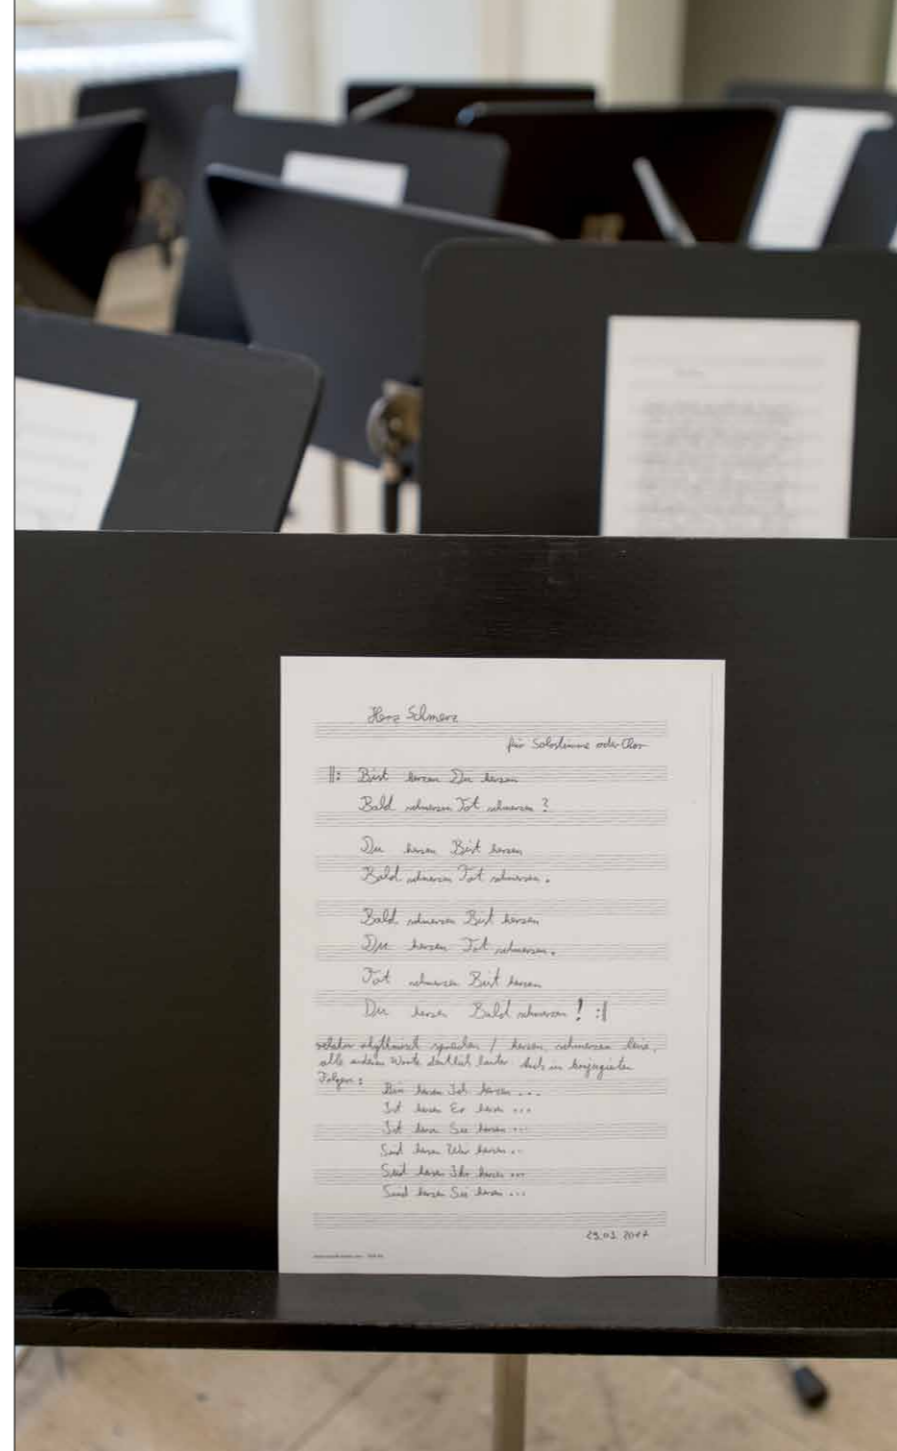 Herz Schmerz
für Solostimme oder Chor
||: Bist herzen Du herzen
Bald schmerzen Tot schmerzen ?
Du herzen Bist herzen
Bald schmerzen Tot schmerzen.
Bald schmerzen Bist herzen
Du herzen Tot schmerzen.
Tot schmerzen Bist herzen
Du herzen Bald schmerzen ! :||
rhythmisch sprechen / herzen, schmerzen leise,
alle anderen Worte deutlich lauter. Auch in konjugierten
Folgen :
Bin herzen Ich herzen ...
Ist herzen Er herzen ...
Ist herzen Sie herzen ...
Sind herzen Wir herzen ...
Seid herzen Ihr herzen ...
Sind herzen Sie herzen ...